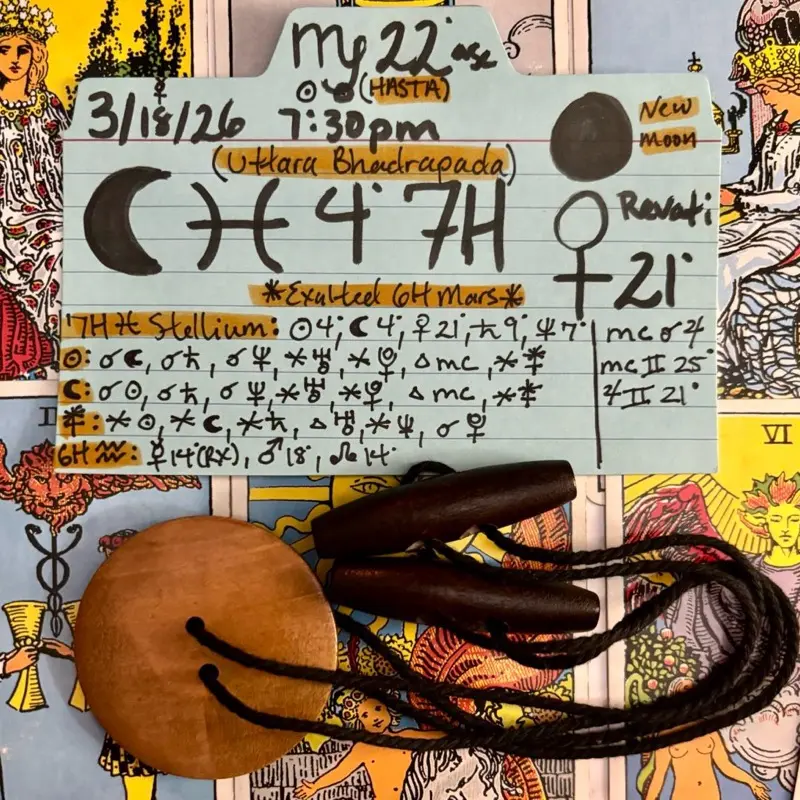 ♍ 22° asc
☉☋ (HASTA)
3/18/26 7:30pm
New Moon
(Uttara Bhadrapada)
☾ ♓ 4° 7H
♀ Revati 21°
*Exalted 6H Mars*
7H ♓ Stellium: ☉4°, ☾4°, ♀21°, ♄9°, ♆7°
mc ☌ ♃
☉: ☌☾, ☌♄, ☌♆, ⚹♅, ⚹♇, △mc, ⚹⚵
mc ♊ 25°
☾: ☌☉, ☌♄, ☌♆, ⚹♅, ⚹♇, △ mc, ⚹⚵
♃ ♊ 21°
⚵: ⚹☉, ⚹☾, ⚹♄, △♅, ⚹♆, ☌♇
6H ♒: ☿14°(RX), ♂18°, ☊14°
VI